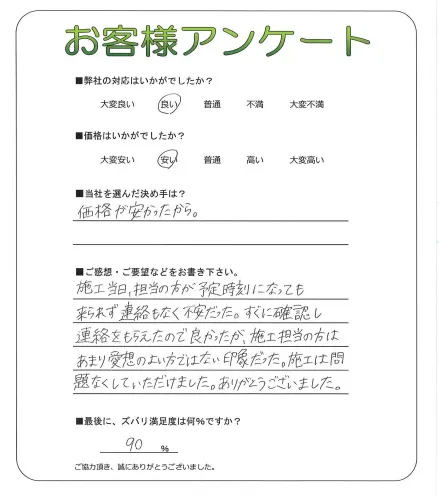 お客様アンケート
■弊社の対応はいかがでしたか？
大変良い 良い 普通 不満 大変不満
■価格はいかがでしたか？
大変安い 安い 普通 高い 大変高い
■当社を選んだ決め手は？
価格が安かったから。
■ご感想・ご要望などをお書き下さい。
施工当日、担当の方が予定時刻になっても
来られず連絡もなく不安だった。すぐに確認し
連絡をもらえたので良かったが、施工担当の方は
あまり愛想のよい方ではない印象だった。施工は問
題なくしていただけました。ありがとうございました。
■最後に、ズバリ満足度は何%ですか？
90 %
ご協力頂き、誠にありがとうございました。